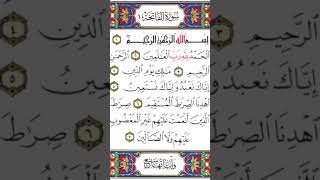 سُورَةُ الْفَاتِحَةِ
بِسْمِ اللَّهِ الرَّحْمَٰنِ الرَّحِيمِ ١
الْحَمْدُ لِلَّهِ رَبِّ الْعَٰلَمِينَ ٢ الرَّحْمَٰنِ
الرَّحِيمِ ٣ مَٰلِكِ يَوْمِ الدِّينِ ٤
إِيَّاكَ نَعْبُدُ وَإِيَّاكَ نَسْتَعِينُ ٥
اهْدِنَا الصِّرَٰطَ الْمُسْتَقِيمَ ٦ صِرَٰطَ
الَّذِينَ أَنْعَمْتَ عَلَيْهِمْ غَيْرِ الْمَغْضُوبِ
عَلَيْهِمْ وَلَا الضَّالِّينَ ٧